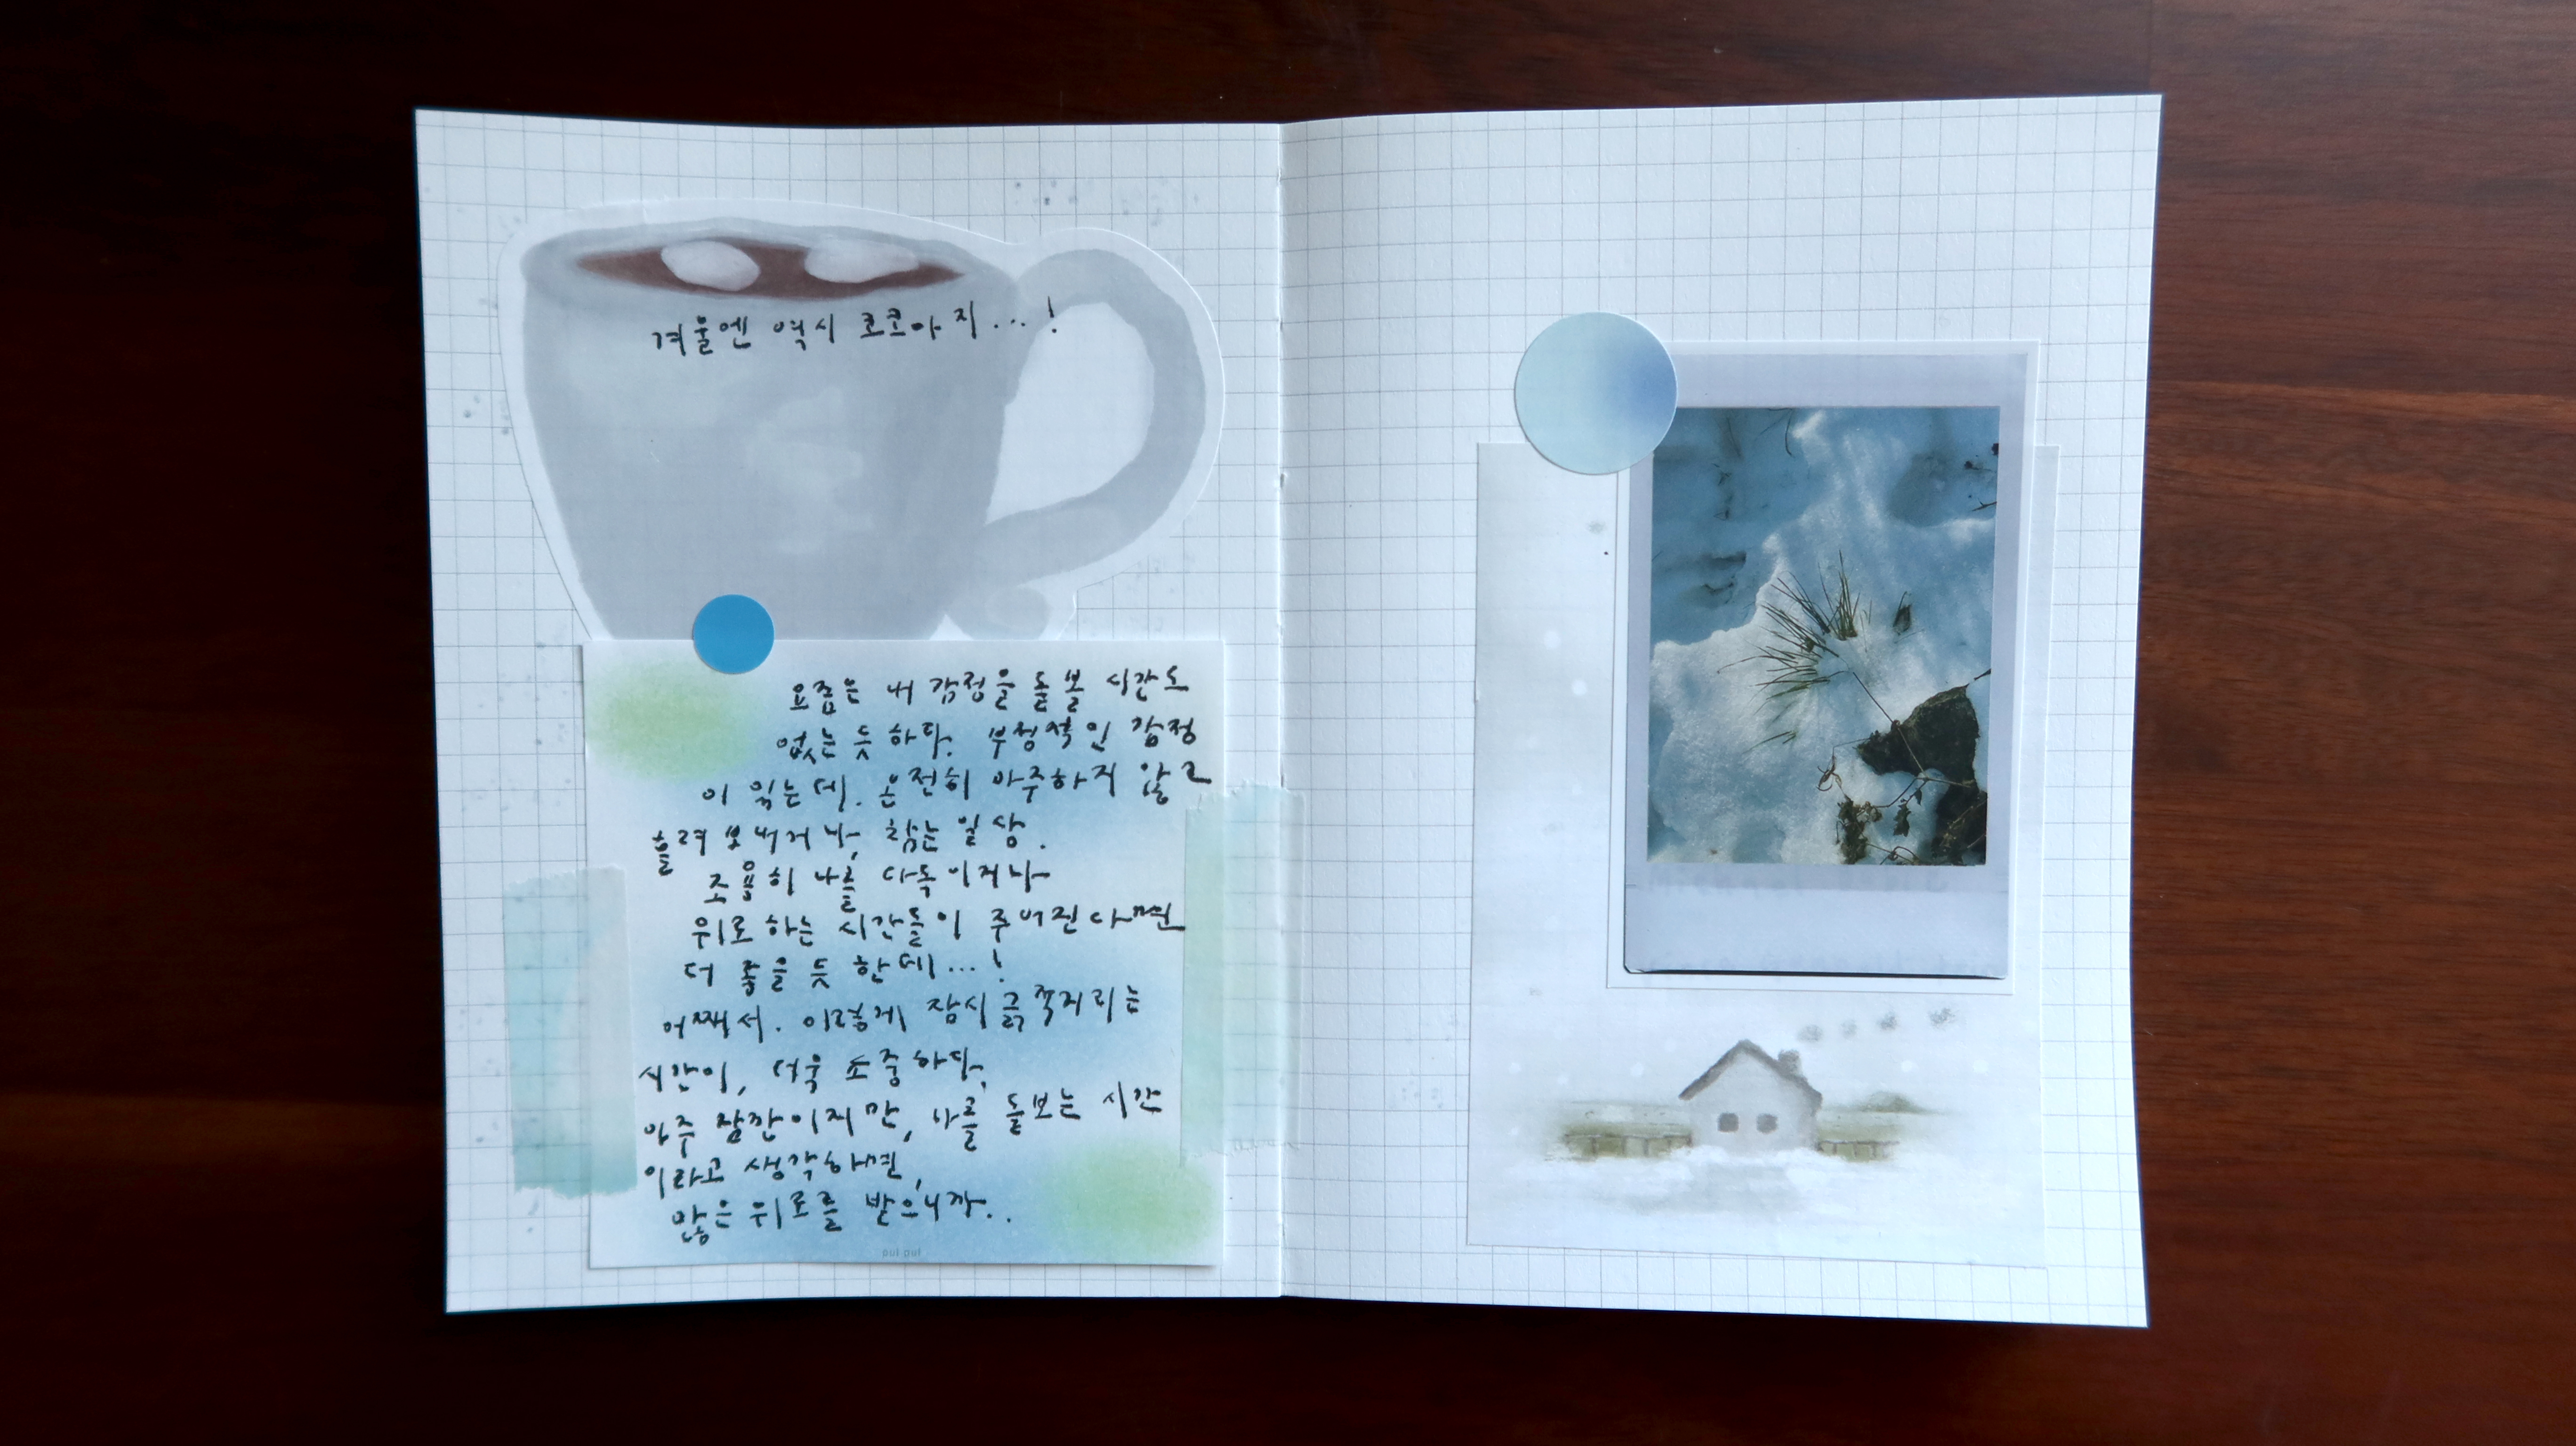 겨울엔 역시 코코아지...!
요즘은 내 감정을 돌볼 시간도
없는 듯 하다. 부정적인 감정
이 있는데. 온전히 마주하지 않고
흘려 보내거나, 참는 일상.
조용히 나를 다독이거나
위로 하는 시간들이 주어진다면
더 좋을 듯 한데...!
어째서. 이렇게 잠시 긁적거리는
시간이, 더욱 소중하다.
아주 잠깐이지만, 나를 돌보는 시간
이라고 생각하면,
많은 위로를 받으니까..
pui pui